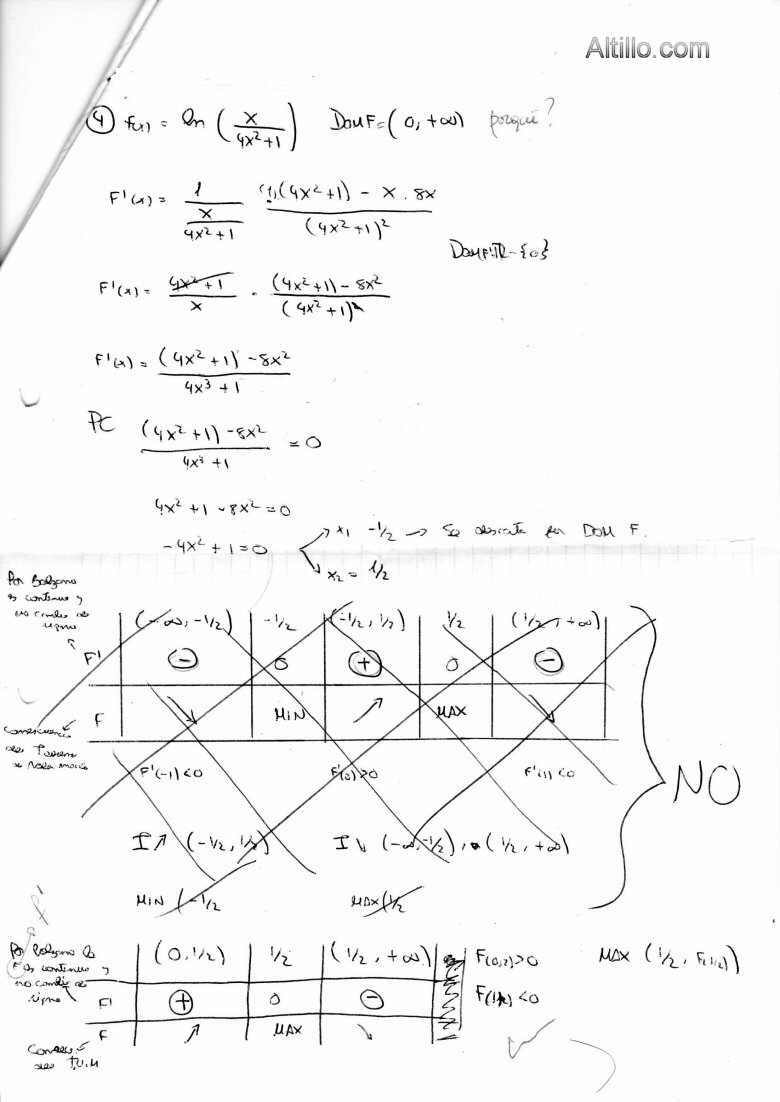 Altillo.com
④ f(x) = ln (x / 4x²+1) DOM F = (0, +∞) porqué?
F'(x) = 1 / (x / 4x²+1) (1)(4x²+1) - x . 8x / (4x²+1)²
DOM F' ℝ-{0}
F'(x) = 4x²+1 / x . (4x²+1) - 8x² / (4x²+1)²
F'(x) = (4x²+1) - 8x² / 4x³+1
PC (4x²+1) - 8x² / 4x³+1 = 0
4x²+1 - 8x² = 0
-4x²+1 = 0 → x1 -1/2 → Se descarta por DOM F.
→ x2 = 1/2
Por Bolzano
es continua y
no cambia de
signo
(-∞, -1/2) -1/2 (-1/2, 1/2) 1/2 (1/2, +∞)
F' - 0 + 0 -
F ↘ MIN ↗ MAX ↘
Consecuencia
del Teorema
F'(-1)<0 F'(0)>0 F'(1)<0
NO
I↗ (-1/2, 1/2) I↘ (-∞, -1/2), (1/2, +∞)
MIN (-1/2 MAX (1/2
f'
Por Bolzano
F es continua y
no cambia de
signo
(0, 1/2) 1/2 (1/2, +∞) F(0,2)>0 MAX (1/2, F(1/2))
F' + 0 - F(1)<0
F ↗ MAX ↘
Consec
del T.V.M